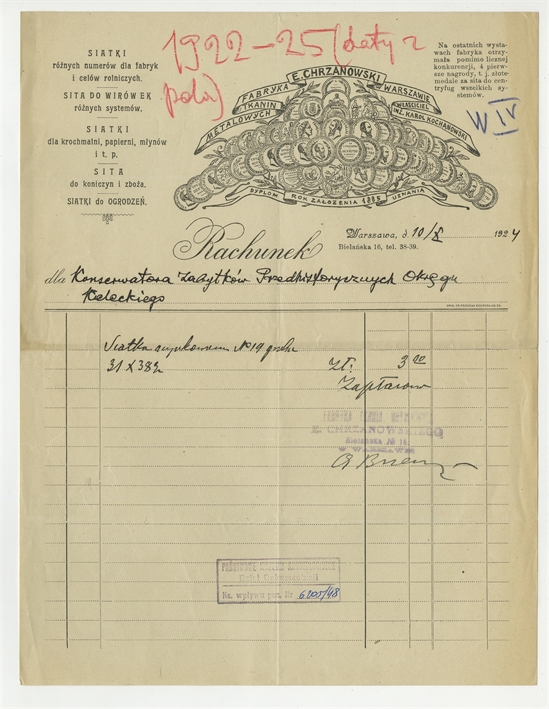 1922-25 (daty z
pola)
W IV
SIATKI
różnych numerów dla fabryk
i celów rolniczych.
SITA DO WIRÓWEK
różnych systemów.
SIATKI
dla krochmalni, papierni, młynów
i t. p.
SITA
do koniczyn i zboża.
SIATKI do OGRODZEŃ.
E. CHRZANOWSKI
FABRYKA WARSZAWIE
TKANIN WŁAŚCICIEL
METALOWYCH INŻ. KAROL KOCHANOWSKI
DYPLOM ROK ZAŁOŻENIA 1885 UZNANIA
Na ostatnich wysta-
wach fabryka otrzy-
mała pomimo licznej
konkurencji, 4 pierw-
sze nagrody, t. j. złote
medale za sita do cen-
tryfug wszelkich sy-
stemów.
Rachunek
Warszawa, d 10/X 1924
Bielańska 16, tel. 38-39.
dla Konserwatora Zabytków Przedhistorycznych Okręgu
Kieleckiego
Siatka No 14
31 X 382 Zł: 3 00
Zapłacono
E. CHRZANOWSKIEGO
Bielańska № 16.
W WARSZAWIE
PAŃSTWOWE MUZEUM ARCHEOLOGICZNE
Dział Dokumentacji
Nr. wpływu poz. Nr 6205/48